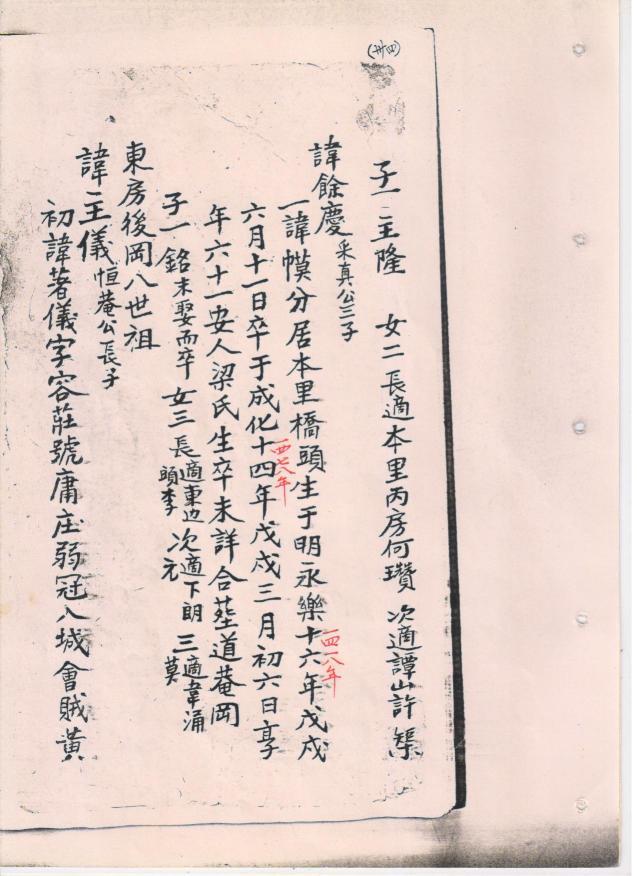 (卅四)
子一 主隆 女二 長適本里丙房何瓚 次適譚山許榘
諱餘慶 采真公三子
一諱幙分居本里橋頭生于明永樂十六年戊戌
一四一八年
六月十一日卒于成化十四年戊戌三月初六日享
一四七八年
年六十一安人梁氏生卒未詳合塟道菴岡
子一銘未娶而卒 女三 長適東边頭李 次適下朗元 三適韋涌莫
東房後岡八世祖
諱主儀 恒菴公長子
初諱著儀字容莊號庸庄弱冠入城會賊黃